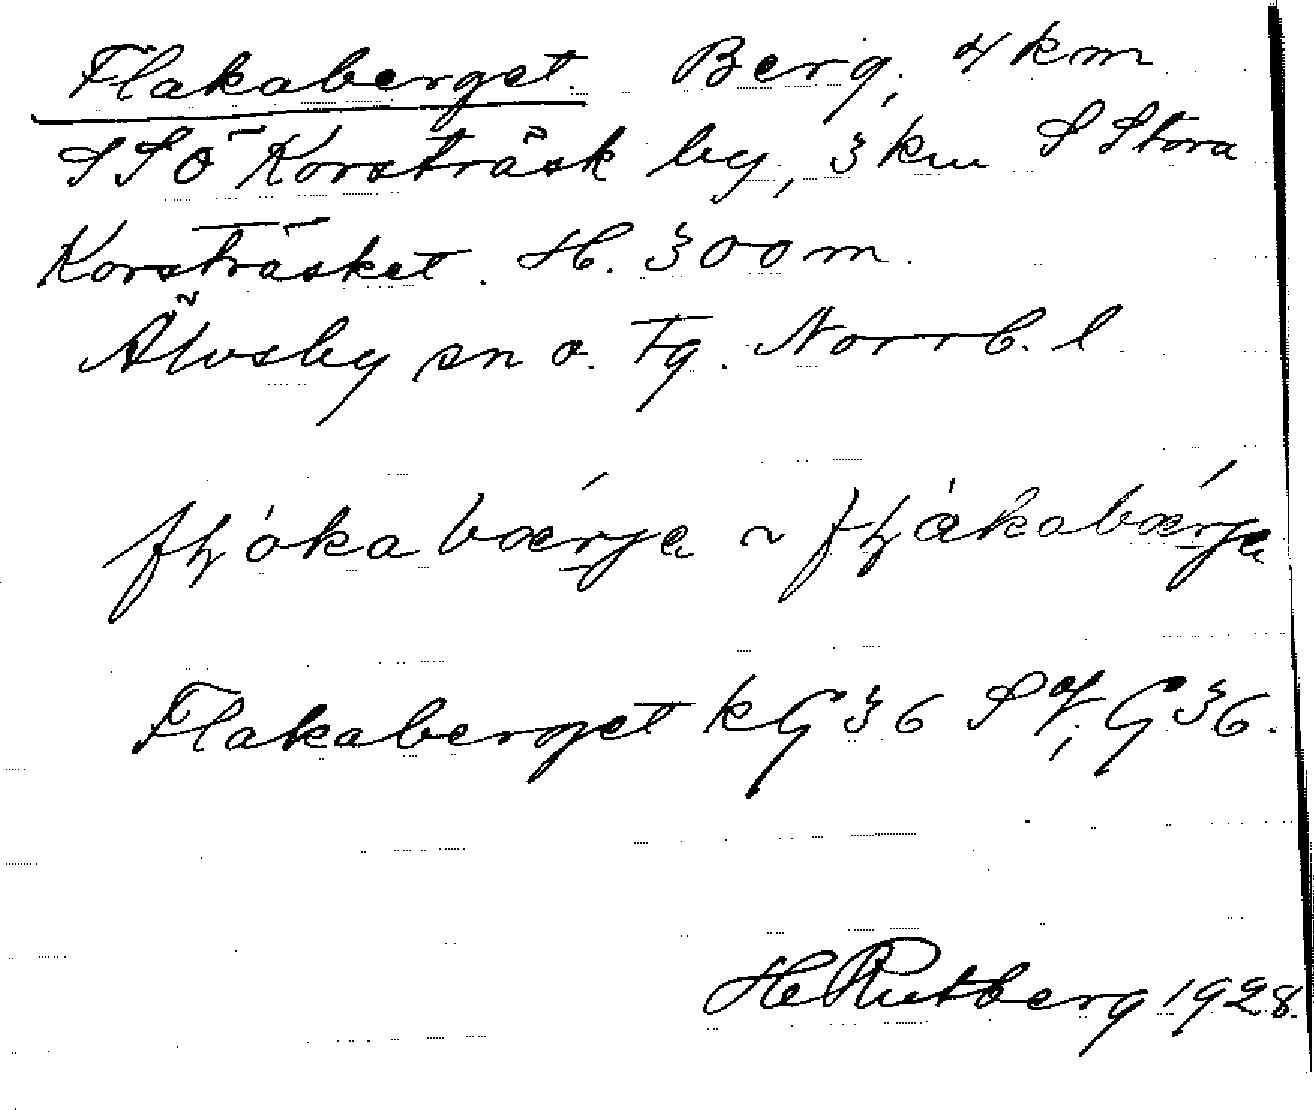 Flakaberget. Berg, 4 km
SSÖ Korsträsk by, 3 km S Stora
Korsträsket. H. 300 m.
Älvsby sn o. tg. Norrb. l
Flakaberget kG 36 SV, G 36.
HRutberg 1928.